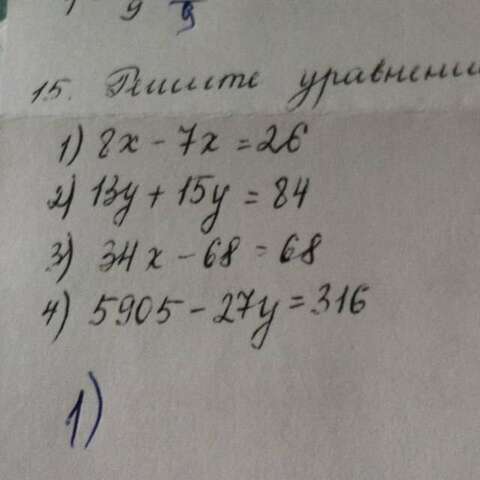 9 9
15. Решите уравнени
1) 8x - 7x = 26
2) 13y + 15y = 84
3) 34x - 68 = 68
4) 5905 - 27y = 316
1)